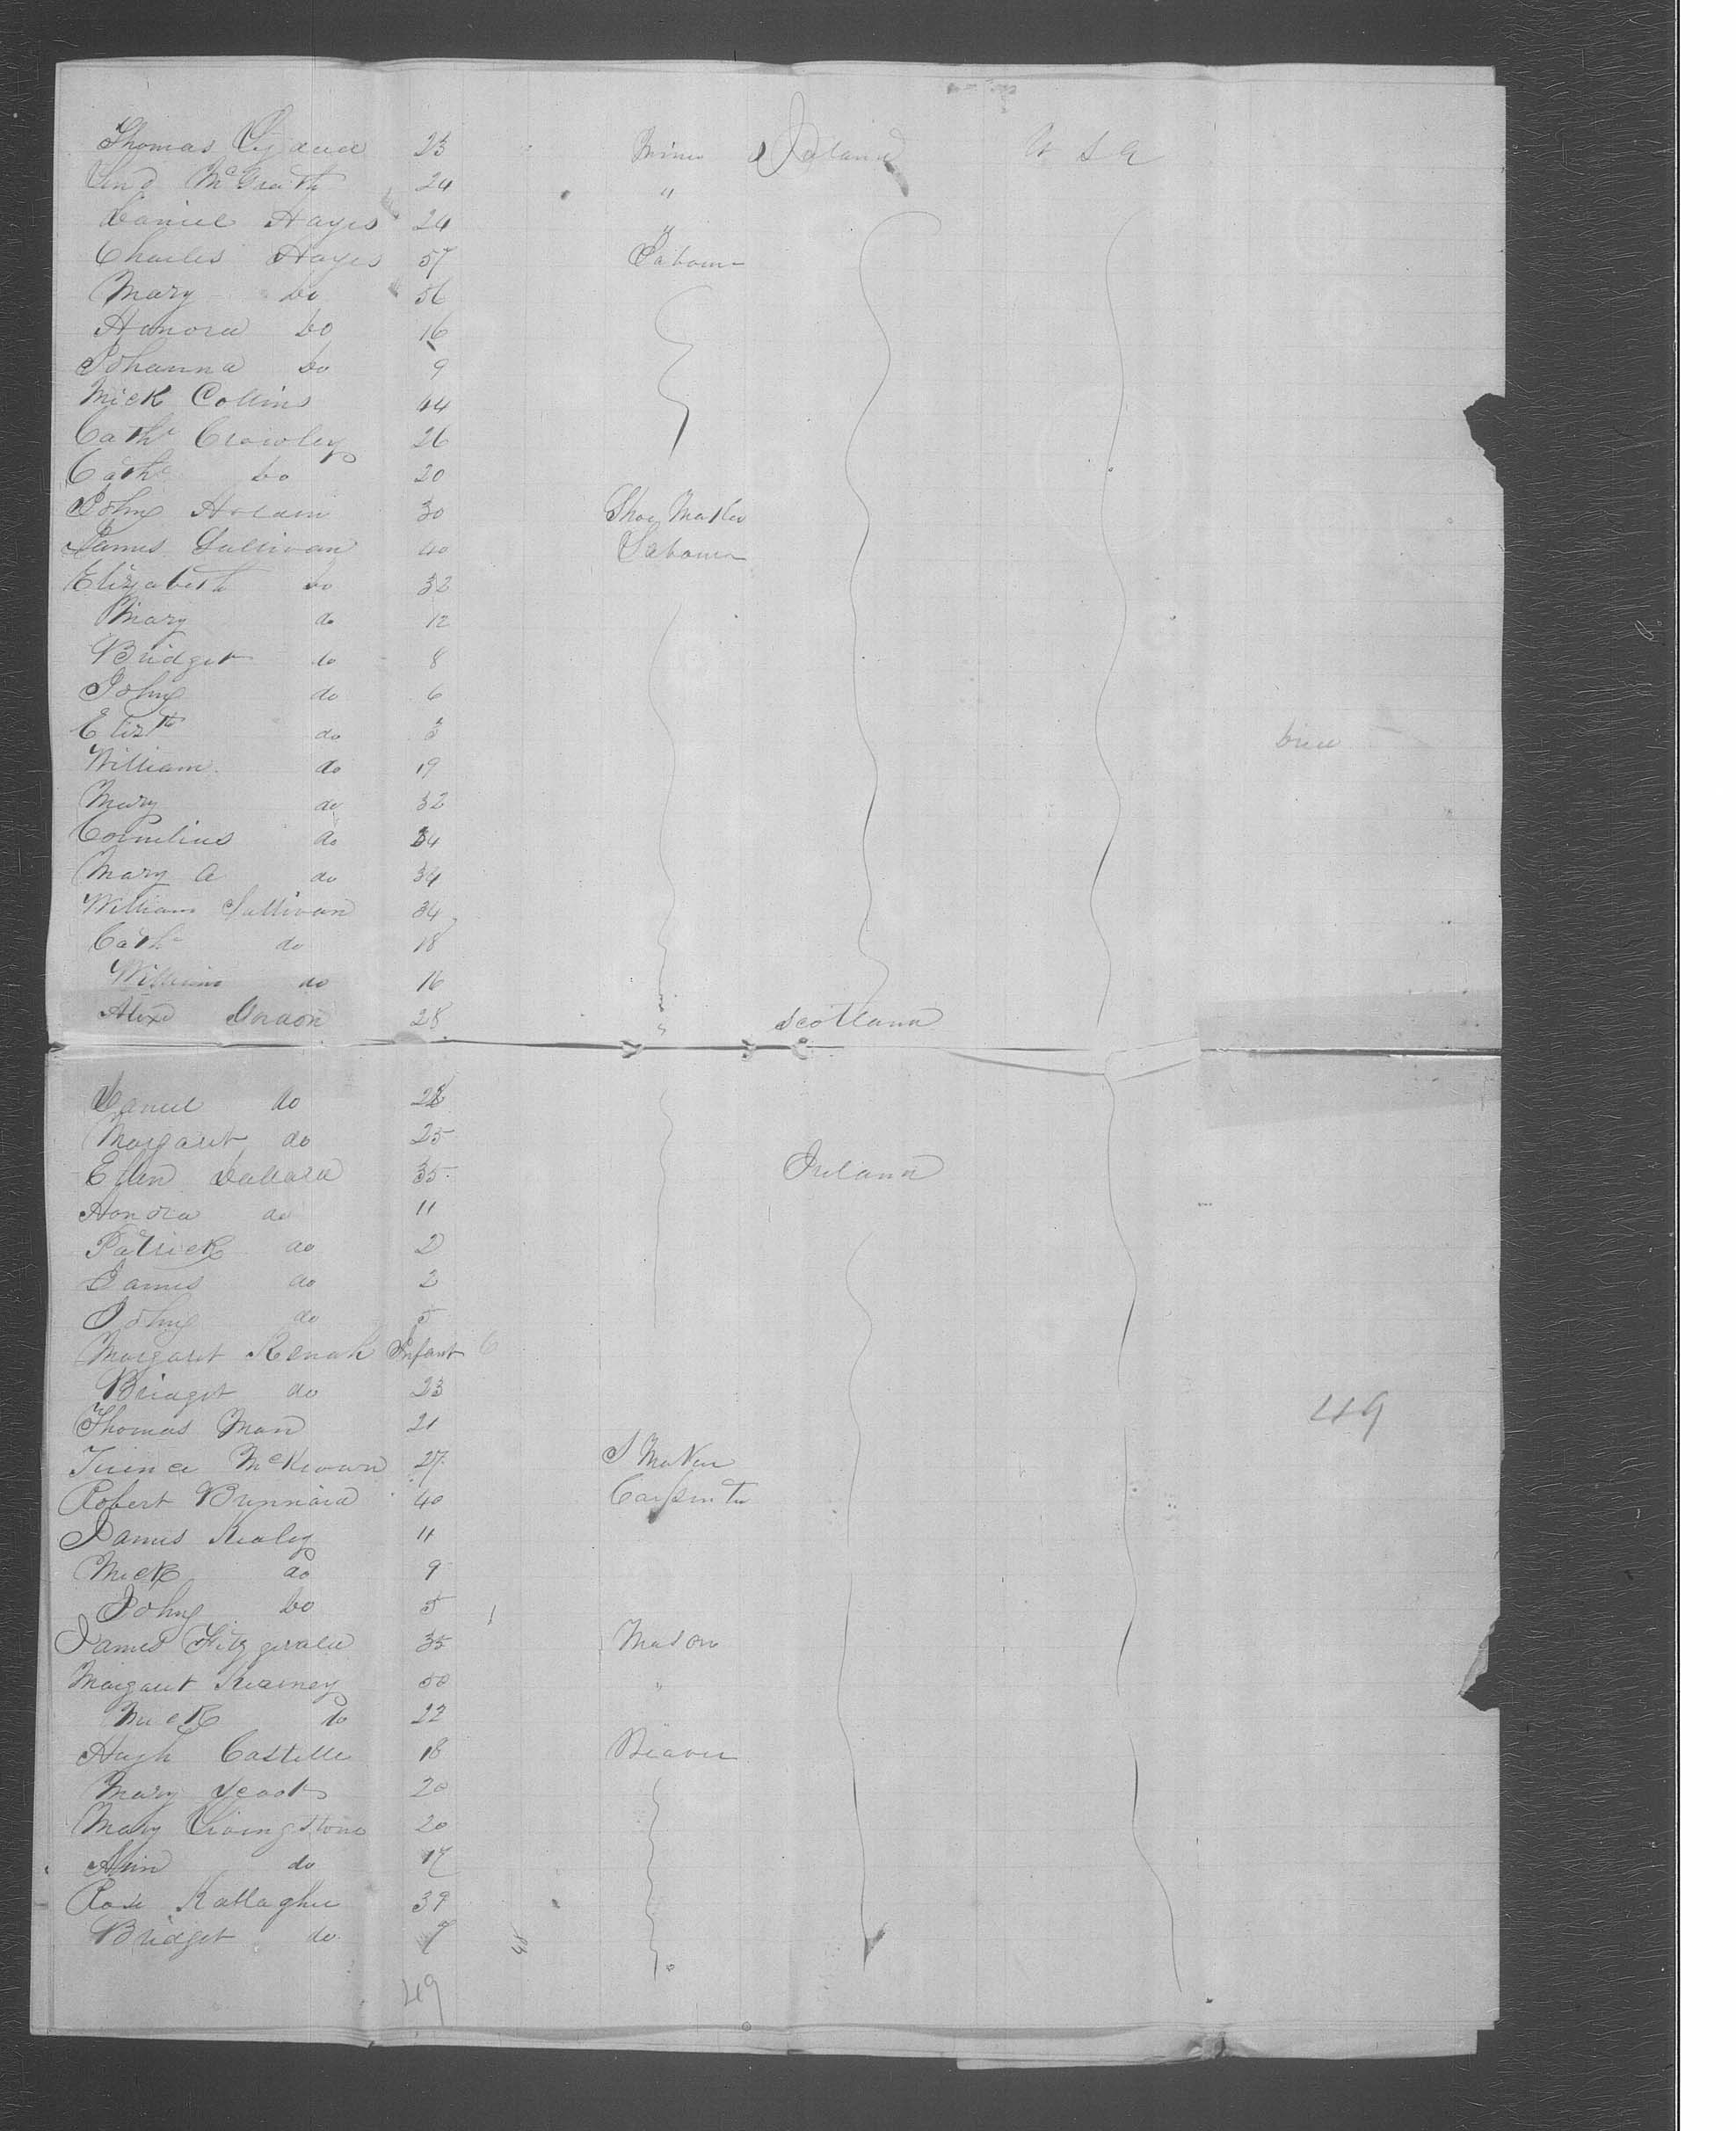 Thomas 23 Miner Ireland U S A
McGrath 24 "
Daniel Hayes 24 "
Charles Hayes 57 Labourer
Mary do 56
Hanora do 16
Johanna do 9
Mick Collins 44
Cathe Crowley 26
Cathe do 20
John 30 Shoe Maker
James Sullivan 40 Labourer
Elizabeth do 32
Mary do 12
Bridget do 8
John do 6
Elizth do 3 Died
William do 19
Mary do 32
Cornelius do 34
Mary A do 34
William Sullivan 34
Cathe do 18
William do 16
Alexd 28 " Scotland
Daniel do 28
Margaret do 25
Ellen 35 Ireland
Honora do 11
Patrick do 2
James do 2
John do 5
Margaret Infant 6
Bridget do 23
49
Thomas Man 21
McKeown 27 S Maker
Robert 40 Carpenter
James Kealey 11
Mick do 9
John do 5
James Fitzgerald 35 Mason
Margaret Kearney 50 "
Mick do 22
Hugh Castelle 18
Mary Scoot 20
Mary Livingstone 20
Ann do 17
Rose Kallagher 39
Bridget do 7 48
49